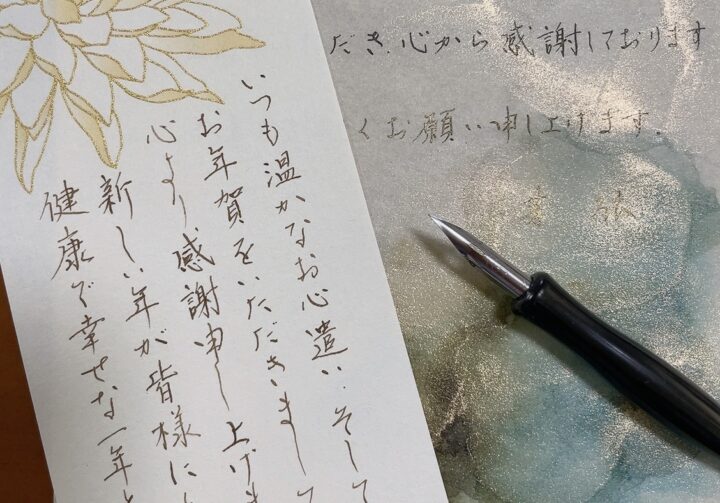 いつも温かなお心遣い、そして
お年賀をいただきまして
心より感謝申し上げま
新しい年が皆様に
健康で幸せな一年と
だき、心から感謝しております
くお願い申し上げます。